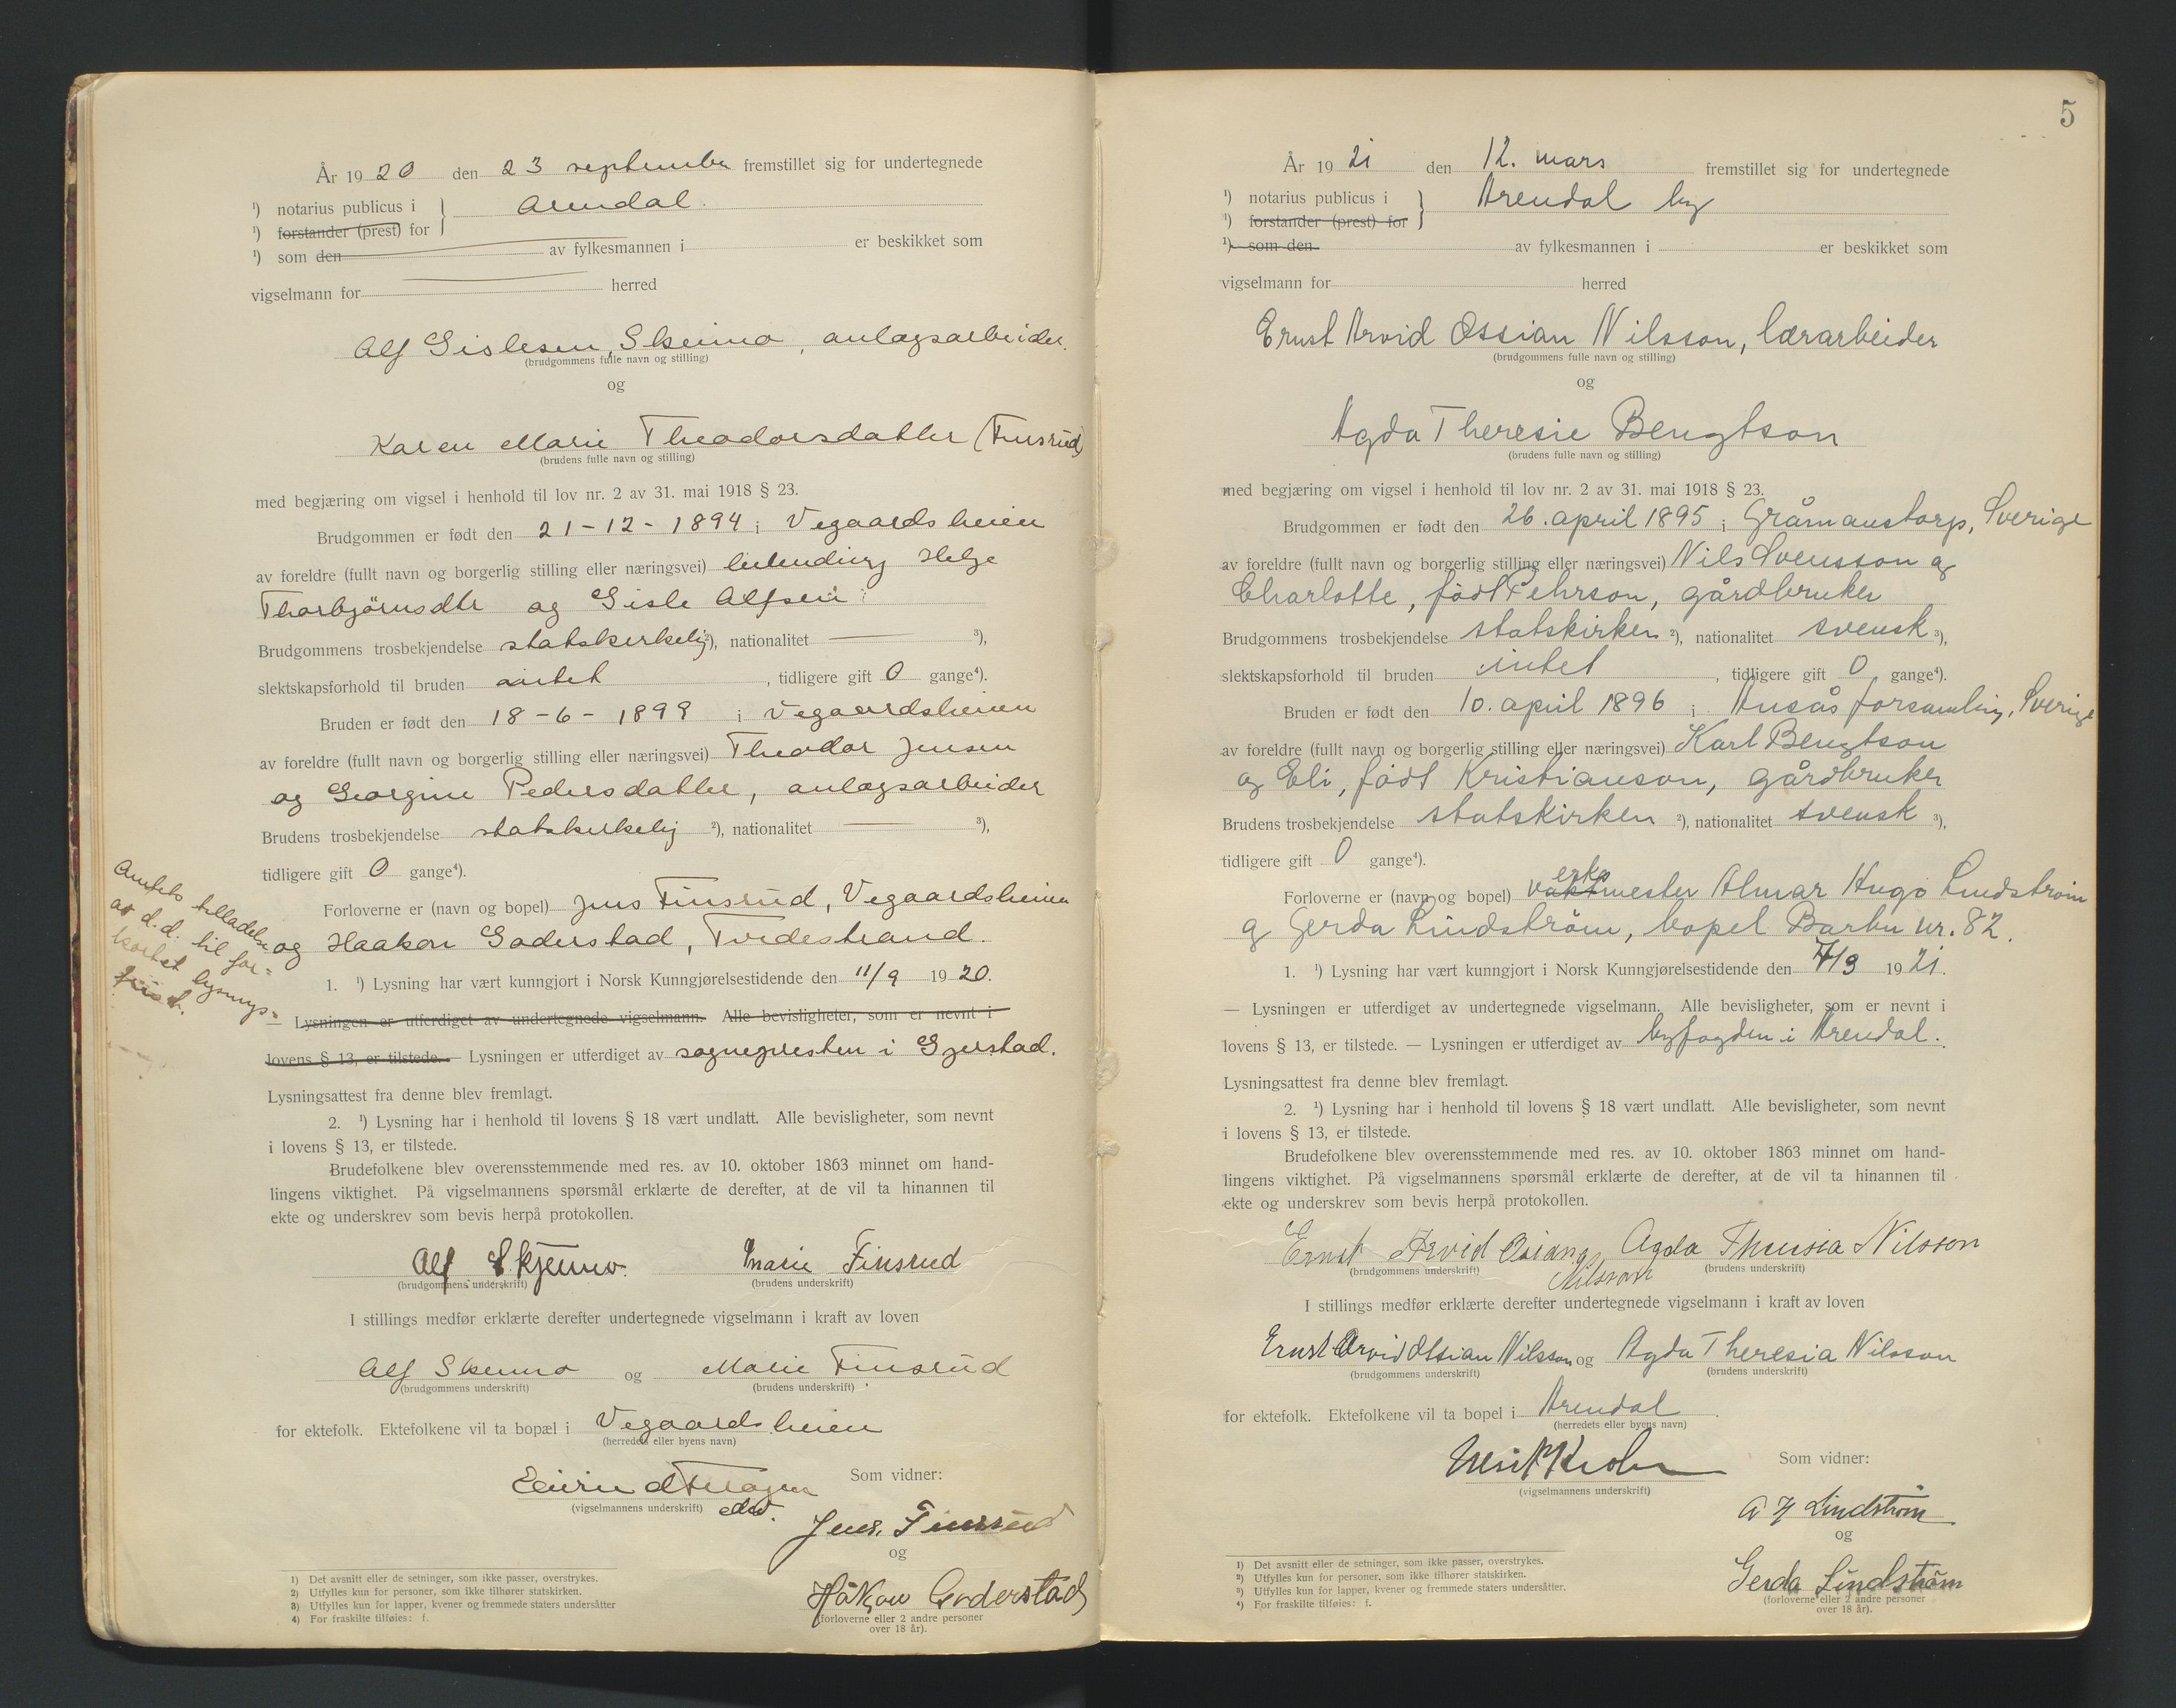 År 1920 den 23 september fremstillet sig for undertegnede
¹) notarius publicus i } Arendal.
¹) forstander (prest) for
¹) som den av fylkesmannen i er beskikket som
vigselmann for herred
Alf Gislesen, Skeimo, anlægsarbeider.
(brudgommens fulle navn og stilling)
og
Karen Marie Theodorsdatter (Finsrud)
(brudens fulle navn og stilling)
med begjæring om vigsel i henhold til lov nr. 2 av 31. mai 1918 § 23.
Brudgommen er født den 21-12-1894 i Vegaardsheien
av foreldre (fullt navn og borgerlig stilling eller næringsvei) Helge
Thorbjörnsdtr og Gisle Alfsen
Brudgommens trosbekjendelse statskirkelig ²), nationalitet ³),
slektskapsforhold til bruden intet, tidligere gift 0 gange⁴).
Bruden er født den 18-6-1899 i Vegaardsheien
av foreldre (fullt navn og borgerlig stilling eller næringsvei) Theodor Jensen
og Georgine Pedersdatter, anlægsarbeider
Brudens trosbekjendelse statskirkelig ²), nationalitet ³),
tidligere gift 0 gange⁴).
Amtets tilladelse
av d.d. til for-
kortet lysnings-
frist.
Forloverne er (navn og bopel) Jens Finsrud, Vegaardsheien
og Haakon Goderstad, Tvedestrand.
1. ¹) Lysning har vært kunngjort i Norsk Kunngjørelsestidende den 11/9 1920.
— Lysningen er utferdiget av undertegnede vigselmann. Alle bevisligheter, som er nevnt i
lovens § 13, er tilstede. — Lysningen er utferdiget av sognepresten i Gjerstad.
Lysningsattest fra denne blev fremlagt.
2. ¹) Lysning har i henhold til lovens § 18 vært undlatt. Alle bevisligheter, som nevnt
i lovens § 13, er tilstede.
Brudefolkene blev overensstemmende med res. av 10. oktober 1863 minnet om hand-
lingens viktighet. På vigselmannens spørsmål erklærte de derefter, at de vil ta hinannen til
ekte og underskrev som bevis herpå protokollen.
Alf Skjeimo. Marie Finsrud
(brudgommens underskrift) (brudens underskrift)
I stillings medfør erklærte derefter undertegnede vigselmann i kraft av loven
Alf Skeimo og Marie Finsrud
(brudgommens underskrift) (brudens underskrift)
for ektefolk. Ektefolkene vil ta bopæl i Vegaardsheien
(herredets eller byens navn)
Som vidner:
(vigselmannens underskrift)
Jens. Finsrud
og
Håkon Goderstad
(forloverne eller 2 andre personer
over 18 år).
1) Det avsnitt eller de setninger, som ikke passer, overstrykes.
2) Utfylles kun for personer, som ikke tilhører statskirken.
3) Utfylles kun for lapper, kvener og fremmede staters undersåtter
4) For fraskilte tilføies: f.
5
År 1921 den 12. mars fremstillet sig for undertegnede
¹) notarius publicus i } Arendal by
¹) forstander (prest) for
¹) som den av fylkesmannen i er beskikket som
vigselmann for herred
Ernst Arvid Ossian Nilsson, lærarbeider
(brudgommens fulle navn og stilling)
og
Agda Theresie Bengtson
(brudens fulle navn og stilling)
med begjæring om vigsel i henhold til lov nr. 2 av 31. mai 1918 § 23.
Brudgommen er født den 26. april 1895 i Gråmanstorp, Sverige
av foreldre (fullt navn og borgerlig stilling eller næringsvei) Nils Svensson og
Charlotte, født Pehrson, gårdbruker
Brudgommens trosbekjendelse statskirken ²), nationalitet svensk ³),
slektskapsforhold til bruden intet, tidligere gift 0 gange⁴).
Bruden er født den 10. april 1896 i Ausås forsamling, Sverige
av foreldre (fullt navn og borgerlig stilling eller næringsvei) Karl Bengtson
og Eli, født Kristianson, gårdbruker
Brudens trosbekjendelse statskirken ²), nationalitet svensk ³),
tidligere gift 0 gange⁴).
Forloverne er (navn og bopel) verksmester Almar Hugo Lindström
og Gerda Lindström, bopel Barbu nr. 82.
1. ¹) Lysning har vært kunngjort i Norsk Kunngjørelsestidende den 7/3 1921.
— Lysningen er utferdiget av undertegnede vigselmann. Alle bevisligheter, som er nevnt i
lovens § 13, er tilstede. — Lysningen er utferdiget av byfogden i Arendal.
Lysningsattest fra denne blev fremlagt.
2. ¹) Lysning har i henhold til lovens § 18 vært undlatt. Alle bevisligheter, som nevnt
i lovens § 13, er tilstede.
Brudefolkene blev overensstemmende med res. av 10. oktober 1863 minnet om hand-
lingens viktighet. På vigselmannens spørsmål erklærte de derefter, at de vil ta hinannen til
ekte og underskrev som bevis herpå protokollen.
Ernst Arvid Osian Nilsson Agda Theresia Nilsson
(brudgommens underskrift) (brudens underskrift)
I stillings medfør erklærte derefter undertegnede vigselmann i kraft av loven
Ernst Arvid Ossian Nilsson og Agda Theresia Nilsson
(brudgommens underskrift) (brudens underskrift)
for ektefolk. Ektefolkene vil ta bopel i Arendal.
(herredets eller byens navn)
Som vidner:
(vigselmannens underskrift)
A H Lindström
og
Gerda Lindström
(forloverne eller 2 andre personer
over 18 år).
1) Det avsnitt eller de setninger, som ikke passer, overstrykes.
2) Utfylles kun for personer, som ikke tilhører statskirken.
3) Utfylles kun for lapper, kvener og fremmede staters undersåtter.
4) For fraskilte tilføies: f.